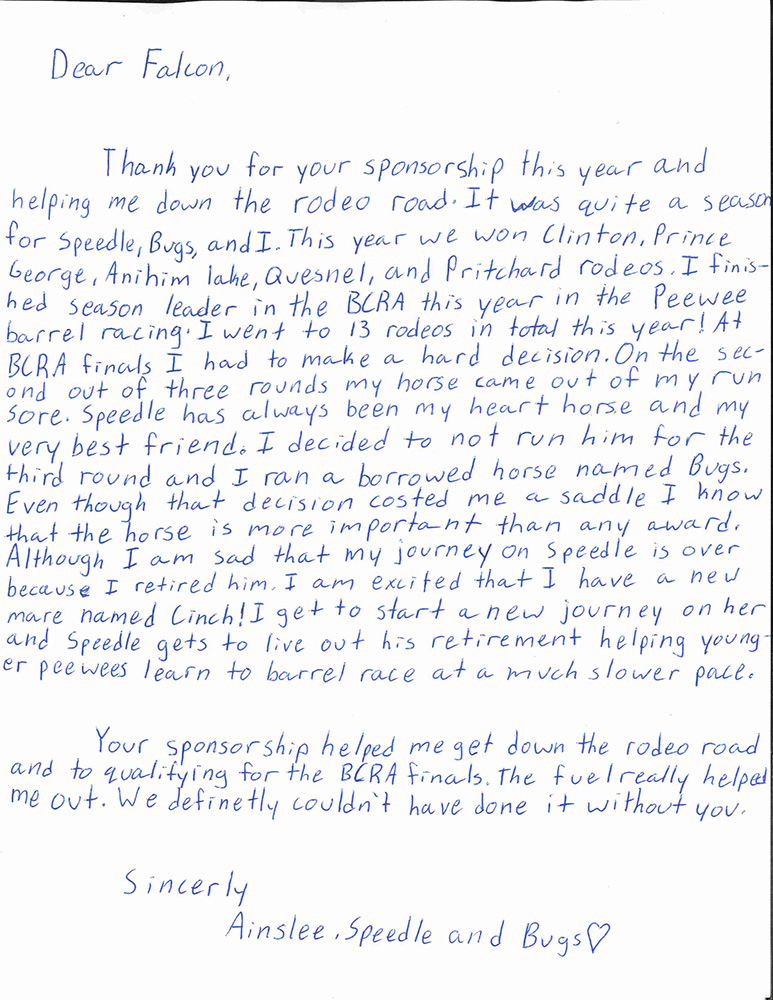 Dear Falcon,
Thank you for your sponsorship this year and
helping me down the rodeo road. It was quite a season
for Speedle, Bugs, and I. This year we won Clinton, Prince
George, Anihim lake, Quesnel, and Pritchard rodeos. I finis-
hed season leader in the BCRA this year in the Peewee
barrel racing. I went to 13 rodeos in total this year! At
BCRA finals I had to make a hard decision. On the sec-
ond out of three rounds my horse came out of my run
sore. Speedle has always been my heart horse and my
very best friend. I decided to not run him for the
third round and I ran a borrowed horse named Bugs.
Even though that decision costed me a saddle I know
that the horse is more important than any award.
Although I am sad that my journey on Speedle is over
because I retired him. I am excited that I have a new
mare named Cinch! I get to start a new journey on her
and Speedle gets to live out his retirement helping young-
er peewees learn to barrel race at a much slower pace.
Your sponsorship helped me get down the rodeo road
and to qualifying for the BCRA finals. The fuel really helped
me out. We definetly couldn't have done it without you.
Sincerly
Ainslee, Speedle and Bugs♡